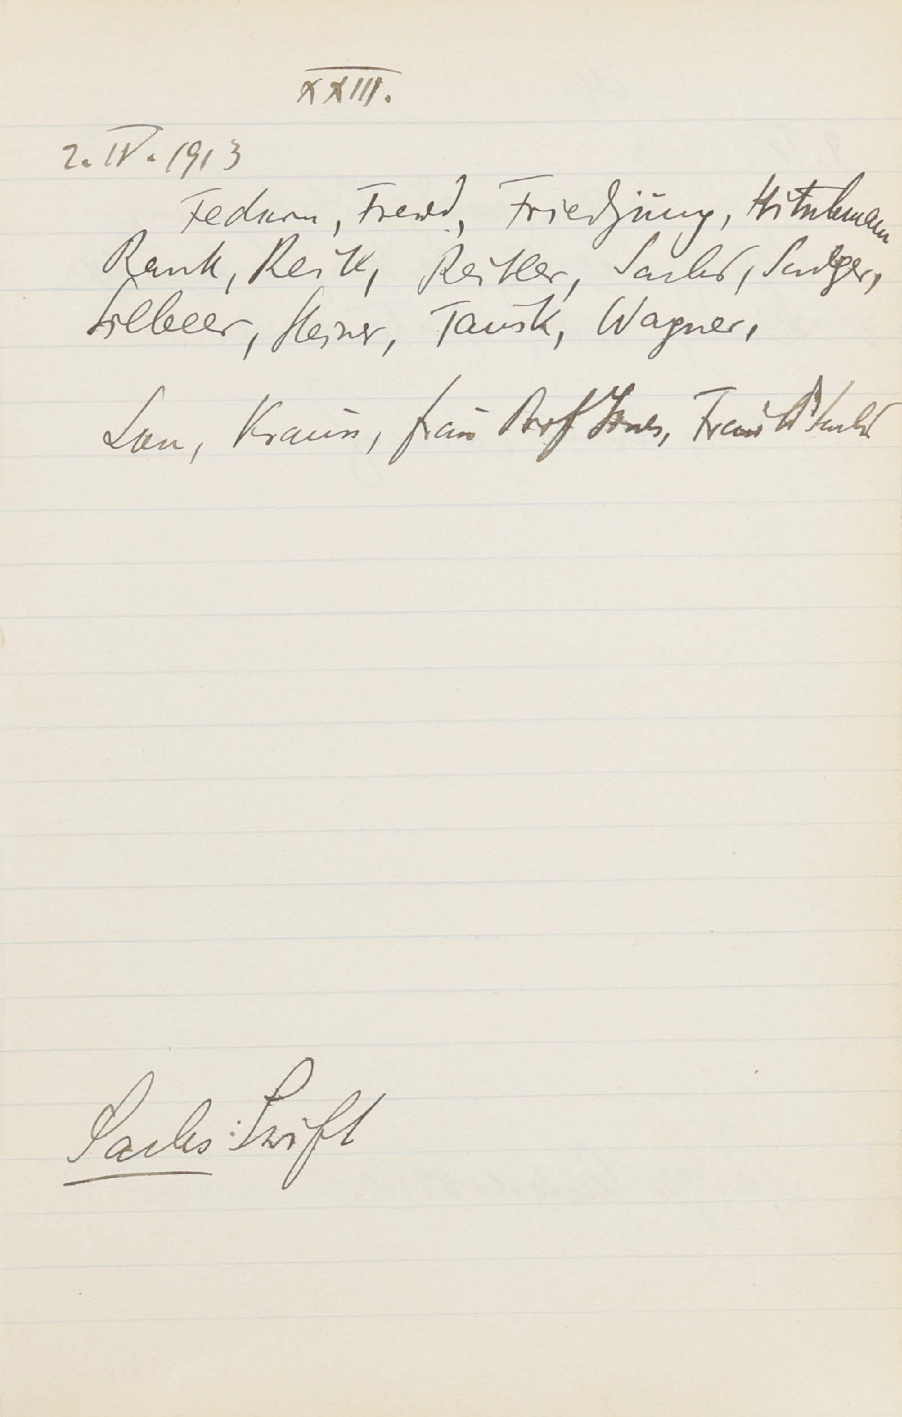 XXIII.
2. IV. 1913
Federn, Freud, Friedjung, Hitschmann
Rank, Reik, Reitler, Sachs, Sadger,
Silberer, Steiner, Tausk, Wagner,
Lou, Krauss, frau Prof Jones, Frau Dr Sachs
Sachs: Swift